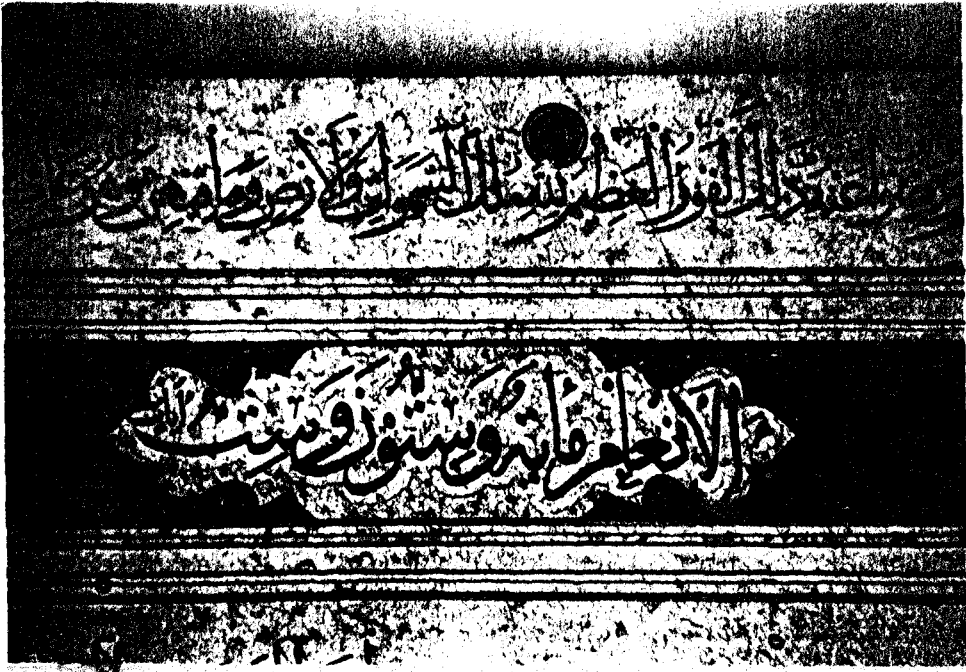 عنه ذلك الفوز العظيم لله ملك السموات والارض وما فيهن وهو
الانعام مايه وستون وست